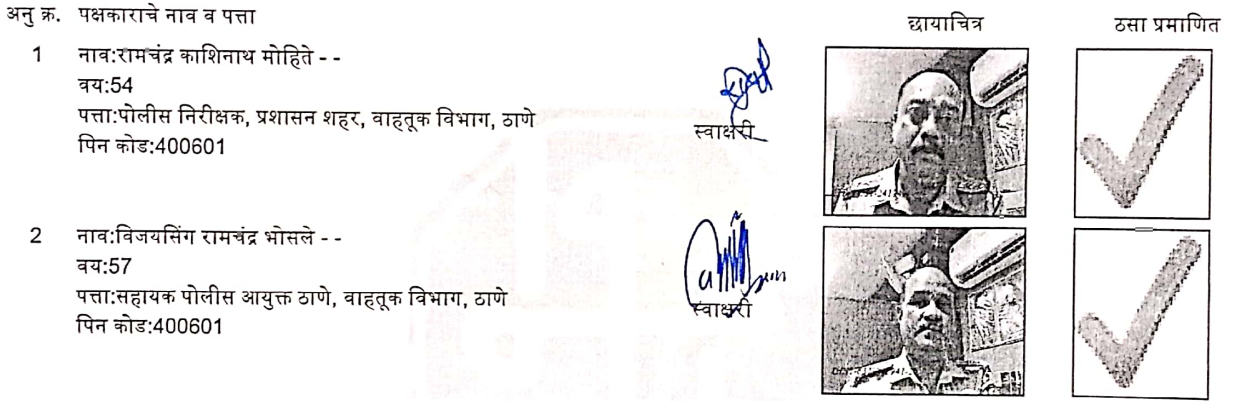 अनु क्र. पक्षकाराचे नाव व पत्ता छायाचित्र ठसा प्रमाणित
1 नाव:रामचंद्र काशिनाथ मोहिते - -
वय:54
पत्ता:पोलीस निरीक्षक, प्रशासन शहर, वाहतूक विभाग, ठाणे
पिन कोड:400601
स्वाक्षरी
2 नाव:विजयसिंग रामचंद्र भोसले - -
वय:57
पत्ता:सहायक पोलीस आयुक्त ठाणे, वाहतूक विभाग, ठाणे
पिन कोड:400601
स्वाक्षरी